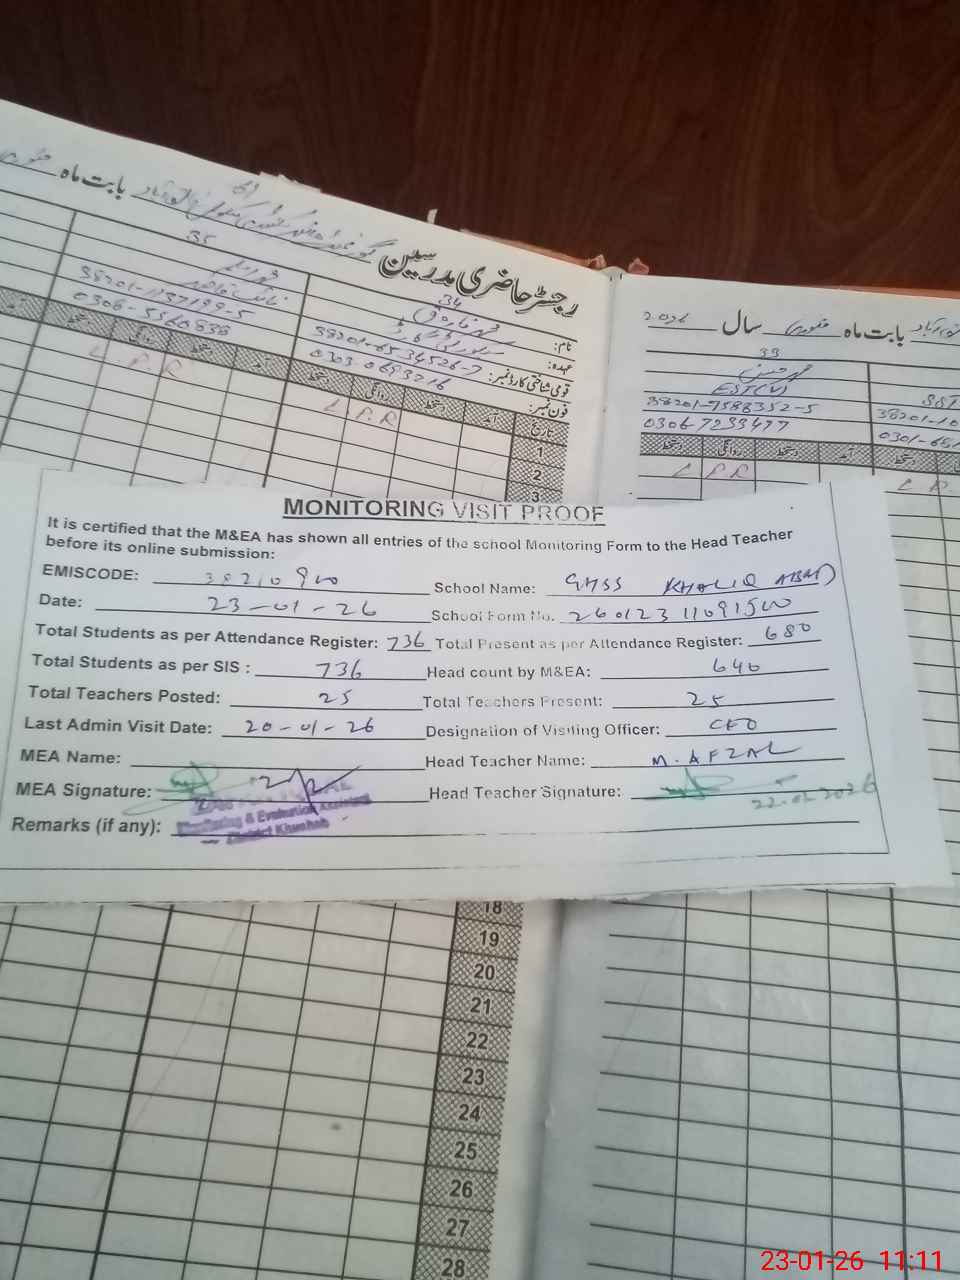 رجسٹر حاضری مدرسین
بابت ماہ
35
38201-1157199-5
0306-5560838
34
نام: محمد فاروق
عہدہ: سیکورٹی گارڈ
قومی شناختی کارڈ نمبر: 38201-6534526-7
فون نمبر: 0303-0693216
تاریخ آمد دستخط روانگی دستخط آمد دستخط روانگی دستخط
L P.R L P.R
1
2
3
بابت ماہ جنوری سال 2026
33
محمد حسن
EST(V) SST
38201-7588352-5 38201-10
0306-7233477 0301-651
دستخط روانگی دستخط آمد دستخط
L P.R L P.
MONITORING VISIT PROOF
It is certified that the M&EA has shown all entries of the school Monitoring Form to the Head Teacher
before its online submission:
EMISCODE: School Name: GHSS KHALIQ ABAD
Date: 23-01-26 School Form No. 260123 11091500
Total Students as per Attendance Register: 736 Total Present as per Attendance Register: 680
Total Students as per SIS : 736 Head count by M&EA: 640
Total Teachers Posted: 25 Total Teachers Present: 25
Last Admin Visit Date: 20-01-26 Designation of Visiting Officer: CEO
MEA Name: Head Teacher Name: M. AFZAL
MEA Signature: Head Teacher Signature:
Monitoring & Evaluation Assistant
District Khushab
Remarks (if any):
18
19
20
21
22
23
24
25
26
27
28
23-01-26 11:11